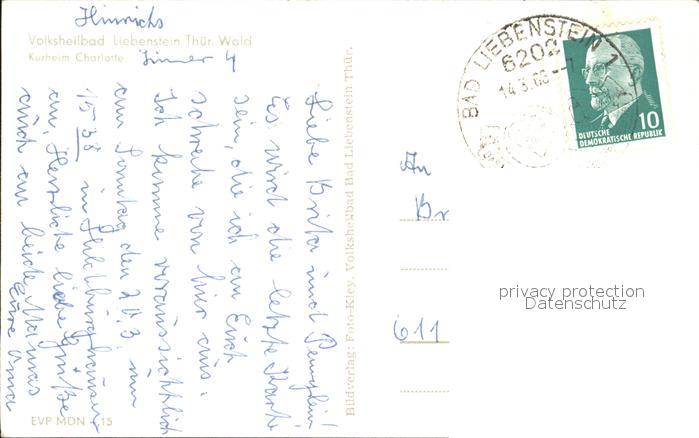 Hinrichs
Volksheilbad Liebenstein Thür. Wald
Kurheim Charlotte Zimmer 4
Liebe Brita und
Es wird die letzte Karte
sein, die ich an Euch
schreibe von hier aus.
Ich komme voraussichtlich
am Sonntag den 20.3. um
15 38 in Hildburghausen
an. Herzliche liebe Grüße
auch an beide Mamas
Eure Oma
EVP MDN -,15
Bildverlag: Foto-Kley, Volksheilbad Bad Liebenstein Thür.
BAD LIEBENSTEIN 1
6202
14.3.66
10
DEUTSCHE
DEMOKRATISCHE REPUBLIK
An
Br
611
privacy protection
Datenschutz